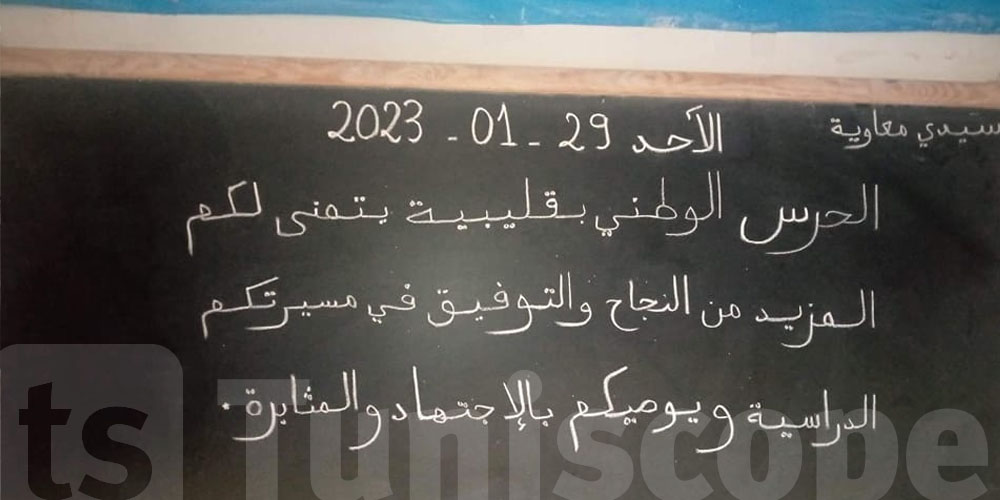 سيدي معاوية
الأحد 29 - 01 - 2023
الحرس الوطني بقليبية يتمنى لكم
المزيد من النجاح والتوفيق في مسيرتكم
الدراسية ويوصيكم بالإجتهاد والمثابرة.
ts Tuniscope